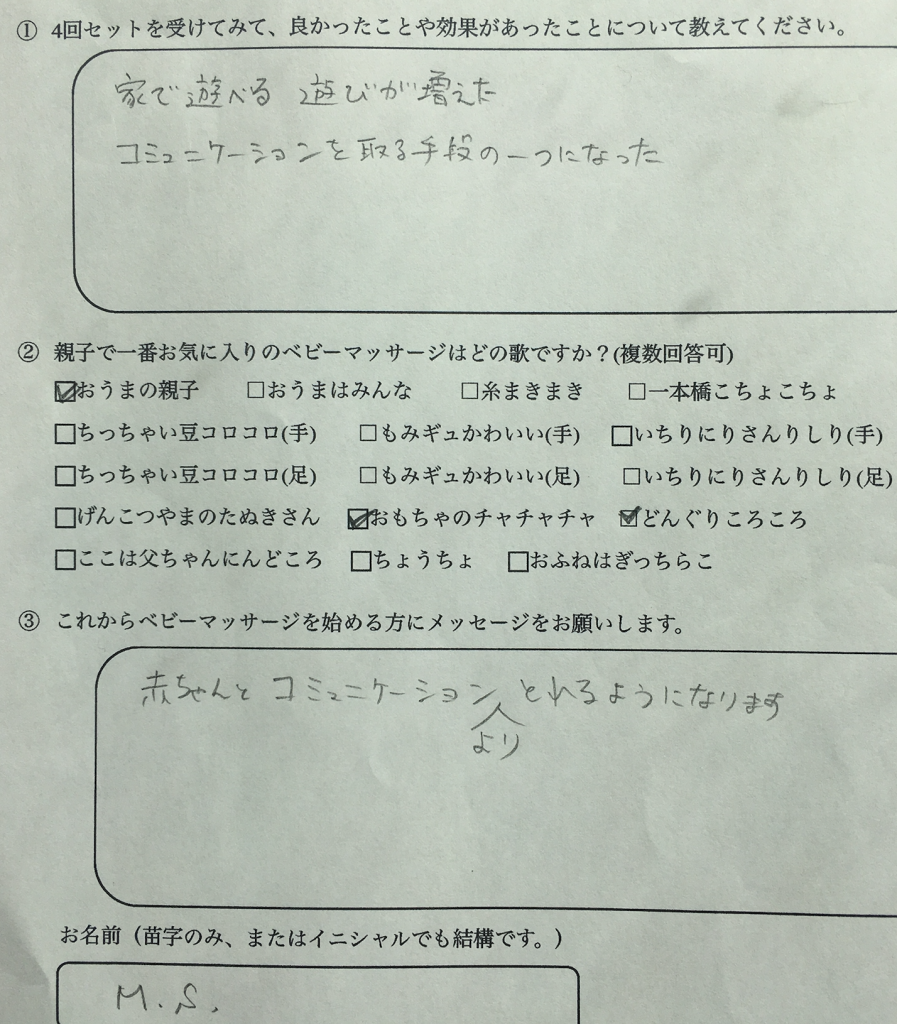 ① 4回セットを受けてみて、良かったことや効果があったことについて教えてください。
家で遊べる 遊びが増えた
コミュニケーションを取る手段の一つになった
② 親子で一番お気に入りのベビーマッサージはどの歌ですか？(複数回答可)
☑おうまの親子 □おうまはみんな □糸まきまき □一本橋こちょこちょ
□ちっちゃい豆コロコロ(手) □もみギュかわいい(手) □いちりにりさんりしり(手)
□ちっちゃい豆コロコロ(足) □もみギュかわいい(足) □いちりにりさんりしり(足)
□げんこつやまのたぬきさん ☑おもちゃのチャチャチャ ☑どんぐりころころ
□ここは父ちゃんにんどころ □ちょうちょ □おふねはぎっちらこ
③ これからベビーマッサージを始める方にメッセージをお願いします。
赤ちゃんと コミュニケーション とれるようになります
より
お名前（苗字のみ、またはイニシャルでも結構です。）
M.S.